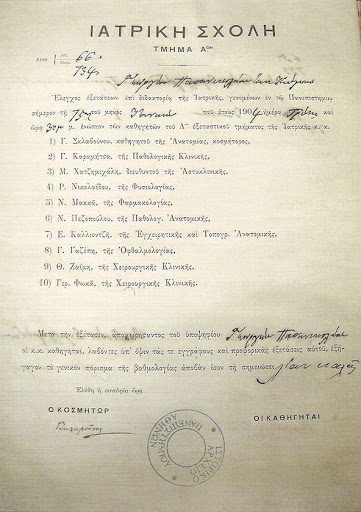 ΙΑΤΡΙΚΗ ΣΧΟΛΗ
ΤΜΗΜΑ Αον
66
734
Γεωργίου Παπανικολάου
Ἔλεγχος ἐξετάσεων ἐπὶ διδακτορίᾳ τῆς Ἰατρικῆς, γενομένων ἐν τῷ Πανεπιστημίῳ
σήμερον τῇ 15ῃ τοῦ μηνὸς τοῦ ἔτους 1904 ἡμέρᾳ καὶ
ὥρᾳ μ. ἐνώπιον τῶν καθηγητῶν τοῦ Αου ἐξεταστικοῦ τμήματος τῆς Ἰατρικῆς κ. κ.
1) Γ. Σκλαβούνου, καθηγητοῦ τῆς Ἀνατομίας, κοσμήτορος,
2) Γ. Καραμήτσα, τῆς Παθολογικῆς Κλινικῆς.
3) Μ. Χατζημιχάλη, διευθυντοῦ τῆς Ἀστυκλινικῆς.
4) Ρ. Νικολαΐδου, τῆς Φυσιολογίας,
5) Ν. Μακκᾶ, τῆς Φαρμακολογίας,
6) Ν. Πεζοπούλου, τῆς Παθολογ. Ἀνατομικῆς,
7) Ε. Καλλιοντζῆ, τῆς Ἐγχειρητικῆς καὶ Τοπογρ. Ἀνατομικῆς,
8) Γ. Γαζέπη, τῆς Ὀφθαλμολογίας,
9) Θ. Ζαΐμη, τῆς Χειρουργικῆς Κλινικῆς,
10) Γερ. Φωκᾶ, τῆς Χειρουργικῆς Κλινικῆς.
Μετὰ τὴν ἐξέτασιν, ἀποχωρήσαντος τοῦ ὑποψηφίου Γεωργίου Παπανικολάου
οἱ κ.κ. καθηγηταί, λαβόντες ὑπ' ὄψιν τὰς τε ἐγγράφους καὶ προφορικὰς ἐξετάσεις αὐτοῦ, ἐξή-
γαγον τὸ γενικὸν πόρισμα τῆς βαθμολογίας ἀποβὰν ἴσον τῇ σημειώσει λίαν καλῶς
Ἐλύθη ἡ συνεδρία ὥρᾳ
Ο ΚΟΣΜΗΤΩΡ
ΟΙ ΚΑΘΗΓΗΤΑΙ
ΙΣΤΟΡΙΚΟ ΑΡΧΕΙΟ ΠΑΝΕΠΙΣΤΗΜΙΟΥ ΑΘΗΝΩΝ